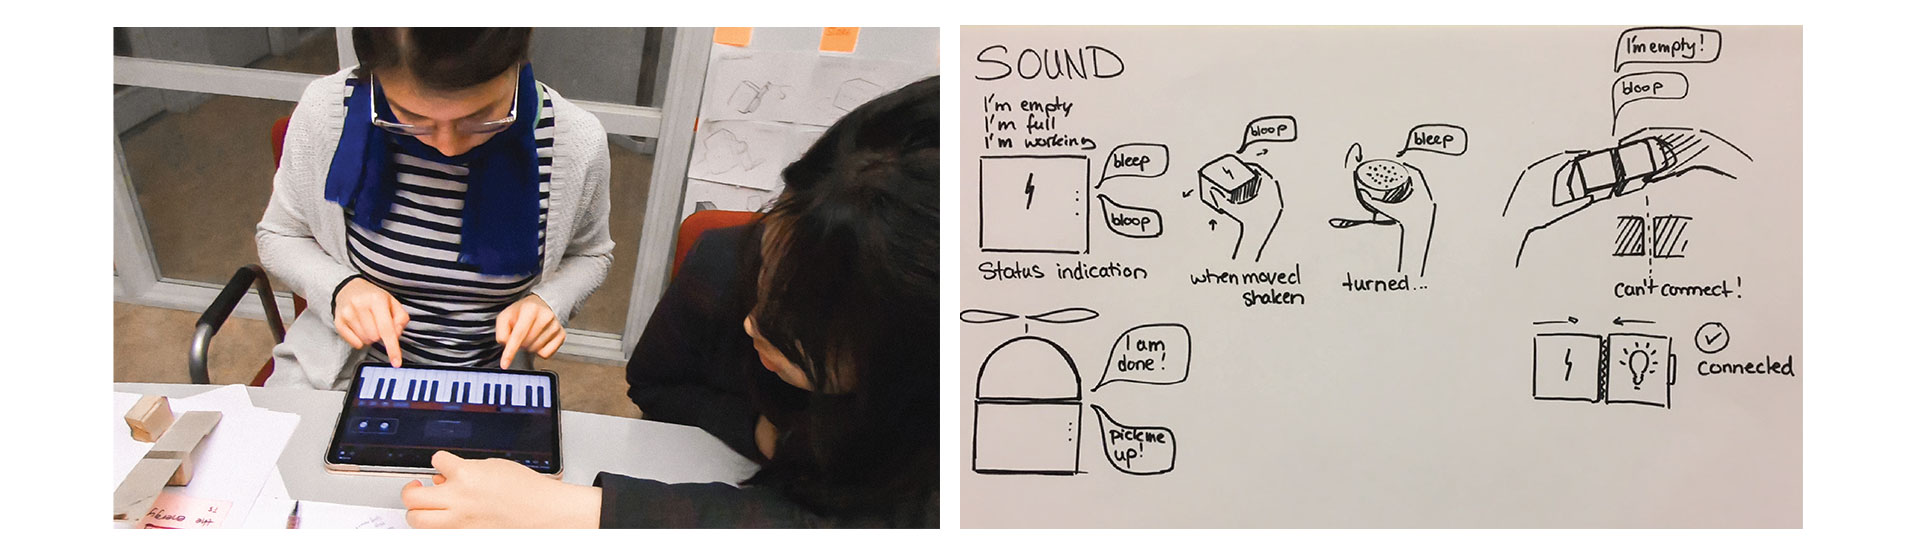 the energy
SOUND
I'm empty
I'm full
I'm working
bleep
bloop
Status indication
bloop
when moved
shaken
bleep
turned...
I'm empty!
bloop
can't connect!
I am
done!
pick me
up!
Connected